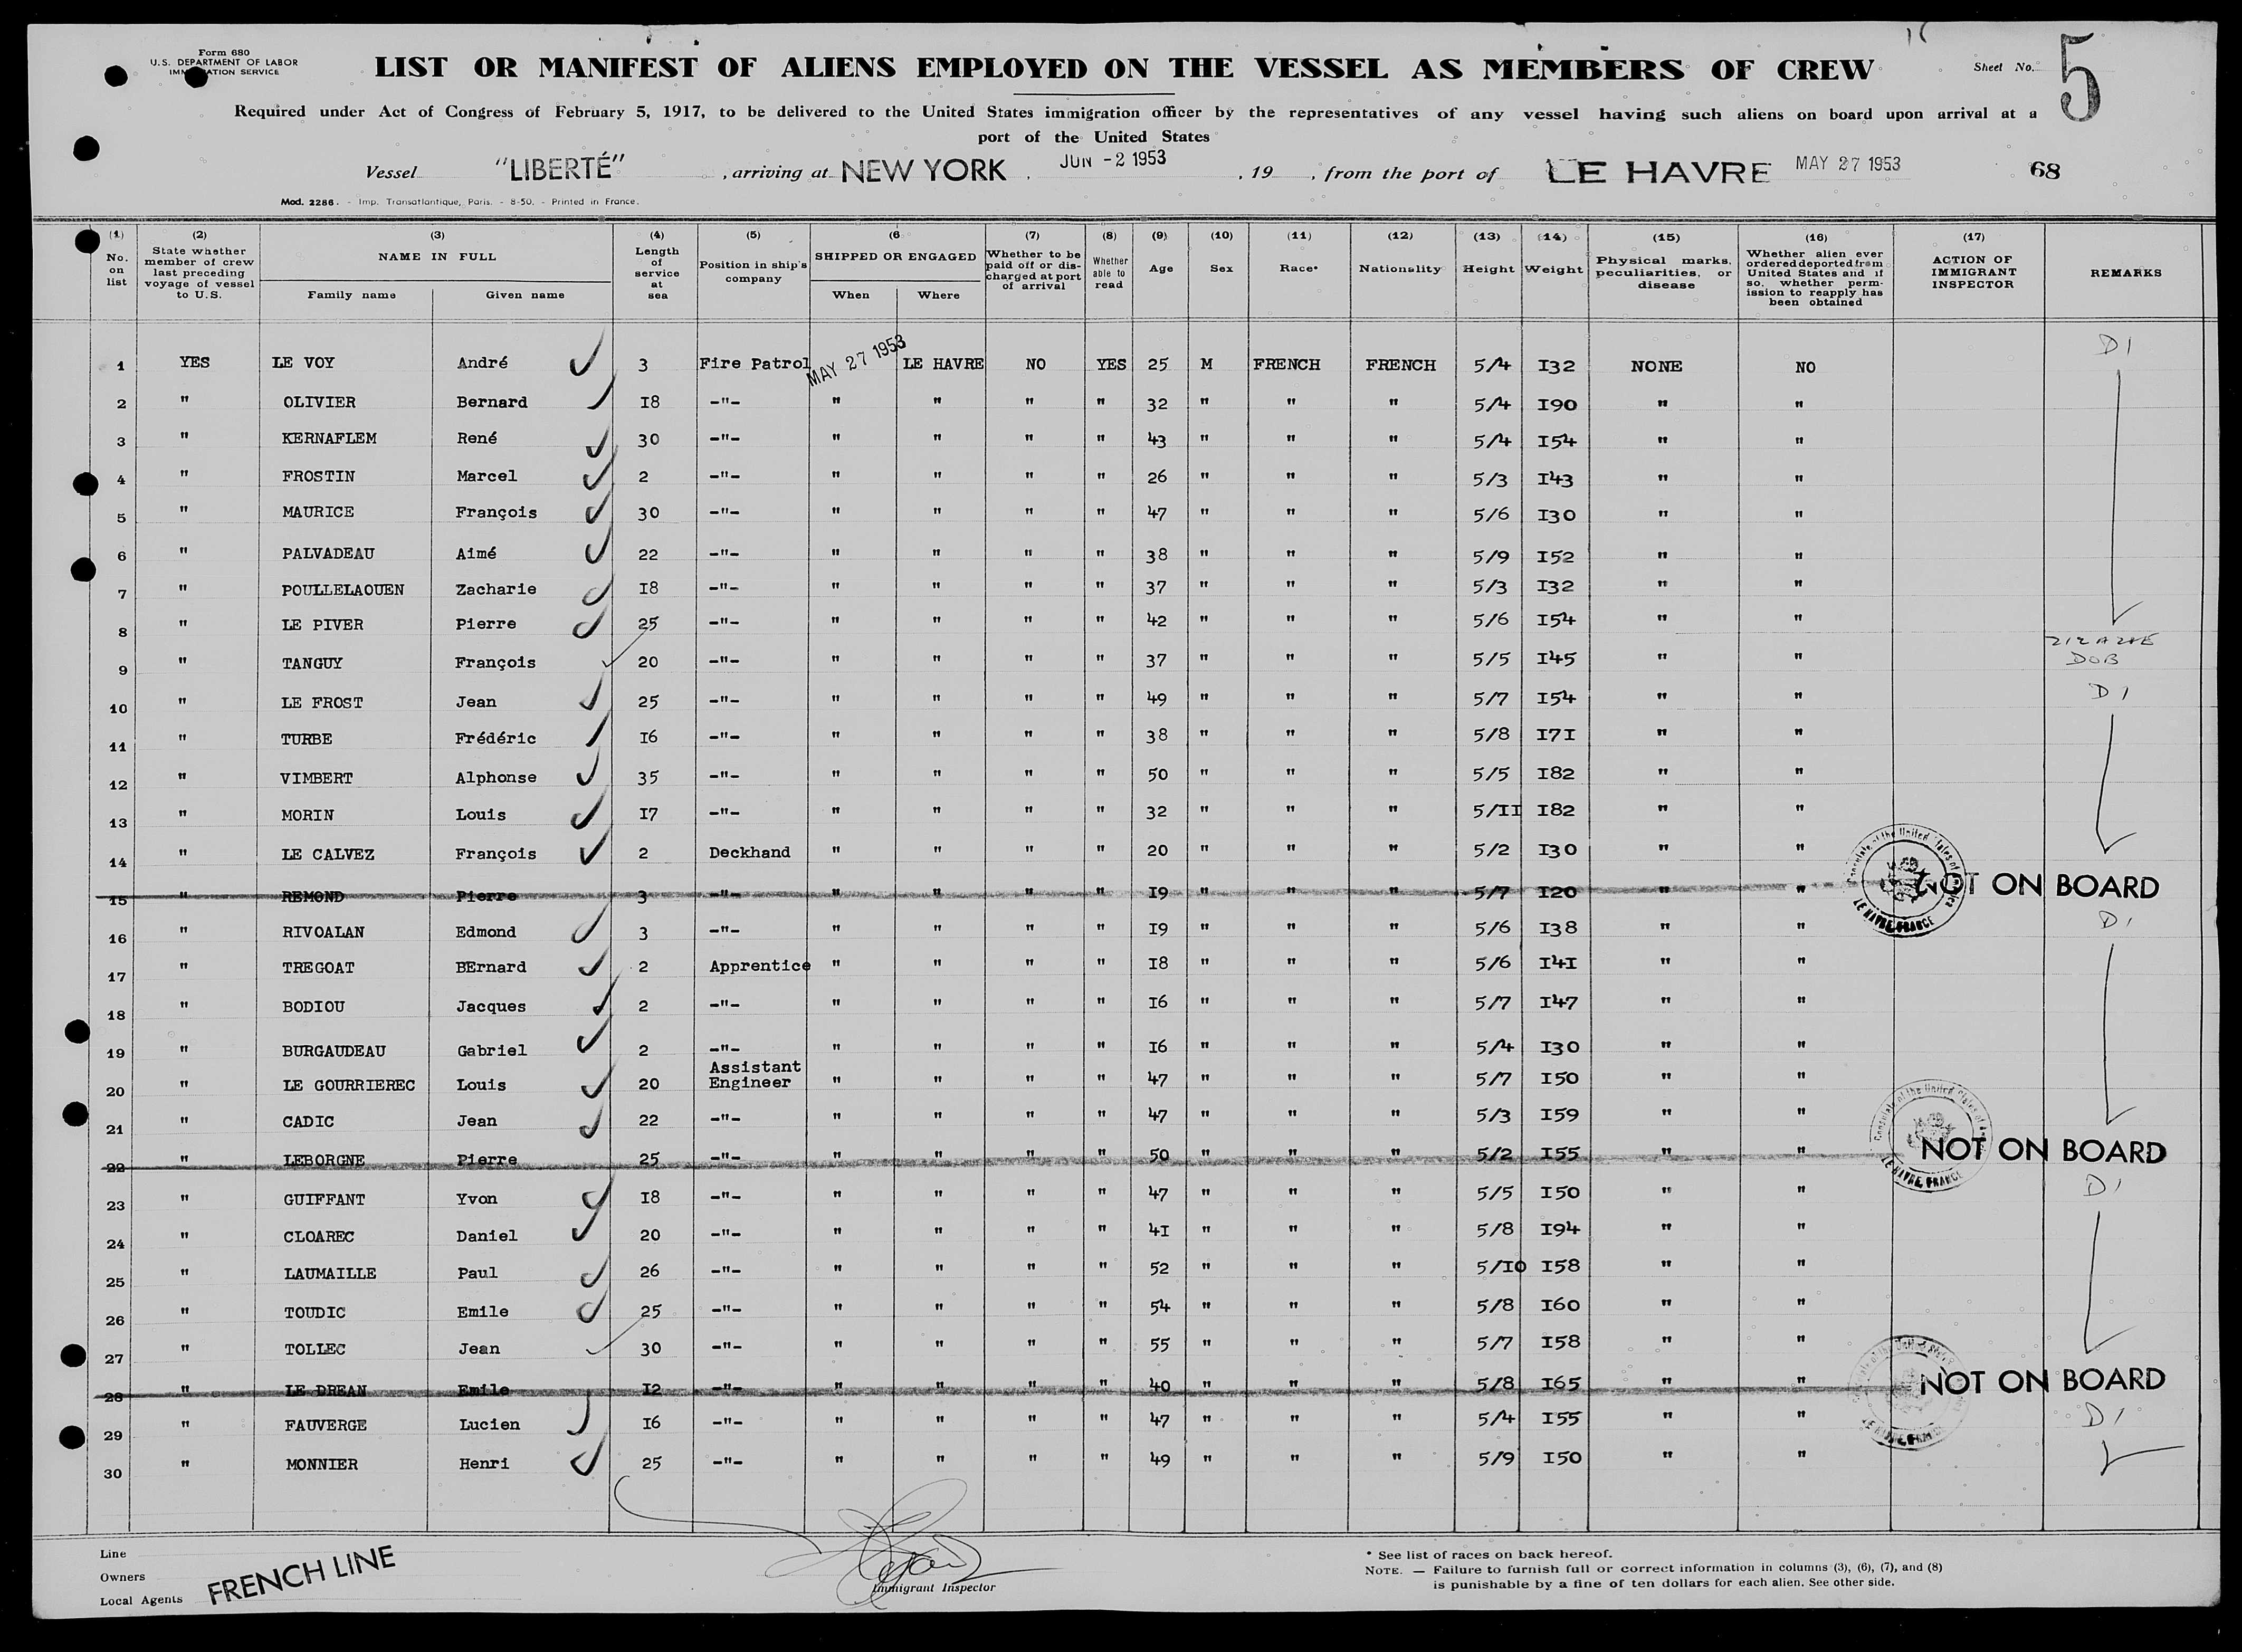 Form 680
U.S. DEPARTMENT OF LABOR
IMMIGRATION SERVICE
LIST OR MANIFEST OF ALIENS EMPLOYED ON THE VESSEL AS MEMBERS OF CREW
Sheet No. 5
Required under Act of Congress of February 5, 1917, to be delivered to the United States immigration officer by the representatives of any vessel having such aliens on board upon arrival at a
port of the United States
Vessel "LIBERTÉ", arriving at NEW YORK. JUN -2 1953, 19 , from the port of LE HAVRE MAY 27 1953 68
Mod. 2286. - Imp. Transatlantique, Paris. - 8-50. - Printed in France.
(1) No. on list (2) State whether member of crew last preceding voyage of vessel to U.S. (3) NAME IN FULL Family name Given name (4) Length of service at sea (5) Position in ship's company (6 SHIPPED OR ENGAGED When Where (7) Whether to be paid off or discharged at port of arrival (8) Whether able to read (9) Age (10) Sex (11) Race* (12) Nationality (13) Height (14) Weight (15) Physical marks, peculiarities, or disease (16) Whether alien ever ordered deported from United States and if so, whether permission to reapply has been obtained (17) ACTION OF IMMIGRANT INSPECTOR REMARKS
1 YES LE VOY André 3 Fire Patrol MAY 27 1953 LE HAVRE NO YES 25 M FRENCH FRENCH 5/4 I32 NONE NO D1
2 " OLIVIER Bernard I8 -"- " " " " 32 " " " 5/4 I90 " "
3 " KERNAFLEM René 30 -"- " " " " 43 " " " 5/4 I54 " "
4 " FROSTIN Marcel 2 -"- " " " " 26 " " " 5/3 I43 " "
5 " MAURICE François 30 -"- " " " " 47 " " " 5/6 I30 " "
6 " PALVADEAU Aimé 22 -"- " " " " 38 " " " 5/9 I52 " "
7 " POULLELAOUEN Zacharie I8 -"- " " " " 37 " " " 5/3 I32 " "
8 " LE PIVER Pierre 25 -"- " " " " 42 " " " 5/6 I54 " "
9 " TANGUY François 20 -"- " " " " 37 " " " 5/5 I45 " " DOB
10 " LE FROST Jean 25 -"- " " " " 49 " " " 5/7 I54 " " D1
11 " TURBE Frédéric I6 -"- " " " " 38 " " " 5/8 I7I " "
12 " VIMBERT Alphonse 35 -"- " " " " 50 " " " 5/5 I82 " "
13 " MORIN Louis I7 -"- " " " " 32 " " " 5/II I82 " "
14 " LE CALVEZ François 2 Deckhand " " " " 20 " " " 5/2 I30 " "
15 " REMOND Pierre 3 -"- " " " " I9 " " " 5/7 I20 " " NOT ON BOARD
16 " RIVOALAN Edmond 3 -"- " " " " I9 " " " 5/6 I38 " " D1
17 " TREGOAT BErnard 2 Apprentice " " " " I8 " " " 5/6 I4I " "
18 " BODIOU Jacques 2 -"- " " " " I6 " " " 5/7 I47 " "
19 " BURGAUDEAU Gabriel 2 -"- " " " " I6 " " " 5/4 I30 " "
20 " LE GOURRIEREC Louis 20 Assistant Engineer " " " " 47 " " " 5/7 I50 " "
21 " CADIC Jean 22 -"- " " " " 47 " " " 5/3 I59 " "
22 " LEBORGNE Pierre 25 -"- " " " " 50 " " " 5/2 I55 " " NOT ON BOARD
23 " GUIFFANT Yvon I8 -"- " " " " 47 " " " 5/5 I50 " " D1
24 " CLOAREC Daniel 20 -"- " " " " 4I " " " 5/8 I94 " "
25 " LAUMAILLE Paul 26 -"- " " " " 52 " " " 5/I0 I58 " "
26 " TOUDIC Emile 25 -"- " " " " 54 " " " 5/8 I60 " "
27 " TOLLEC Jean 30 -"- " " " " 55 " " " 5/7 I58 " "
28 " LE DREAN Emile I2 -"- " " " " 40 " " " 5/8 I65 " " NOT ON BOARD
29 " FAUVERGE Lucien I6 -"- " " " " 47 " " " 5/4 I55 " " D1
30 " MONNIER Henri 25 -"- " " " " 49 " " " 5/9 I50 " "
Consulate of the United States of America LE HAVRE, FRANCE
Consulate of the United States of LE HAVRE, FRANCE
Line
Owners
Local Agents
FRENCH LINE
Immigrant Inspector
* See list of races on back hereof.
NOTE. — Failure to furnish full or correct information in columns (3), (6), (7), and (8)
is punishable by a fine of ten dollars for each alien. See other side.